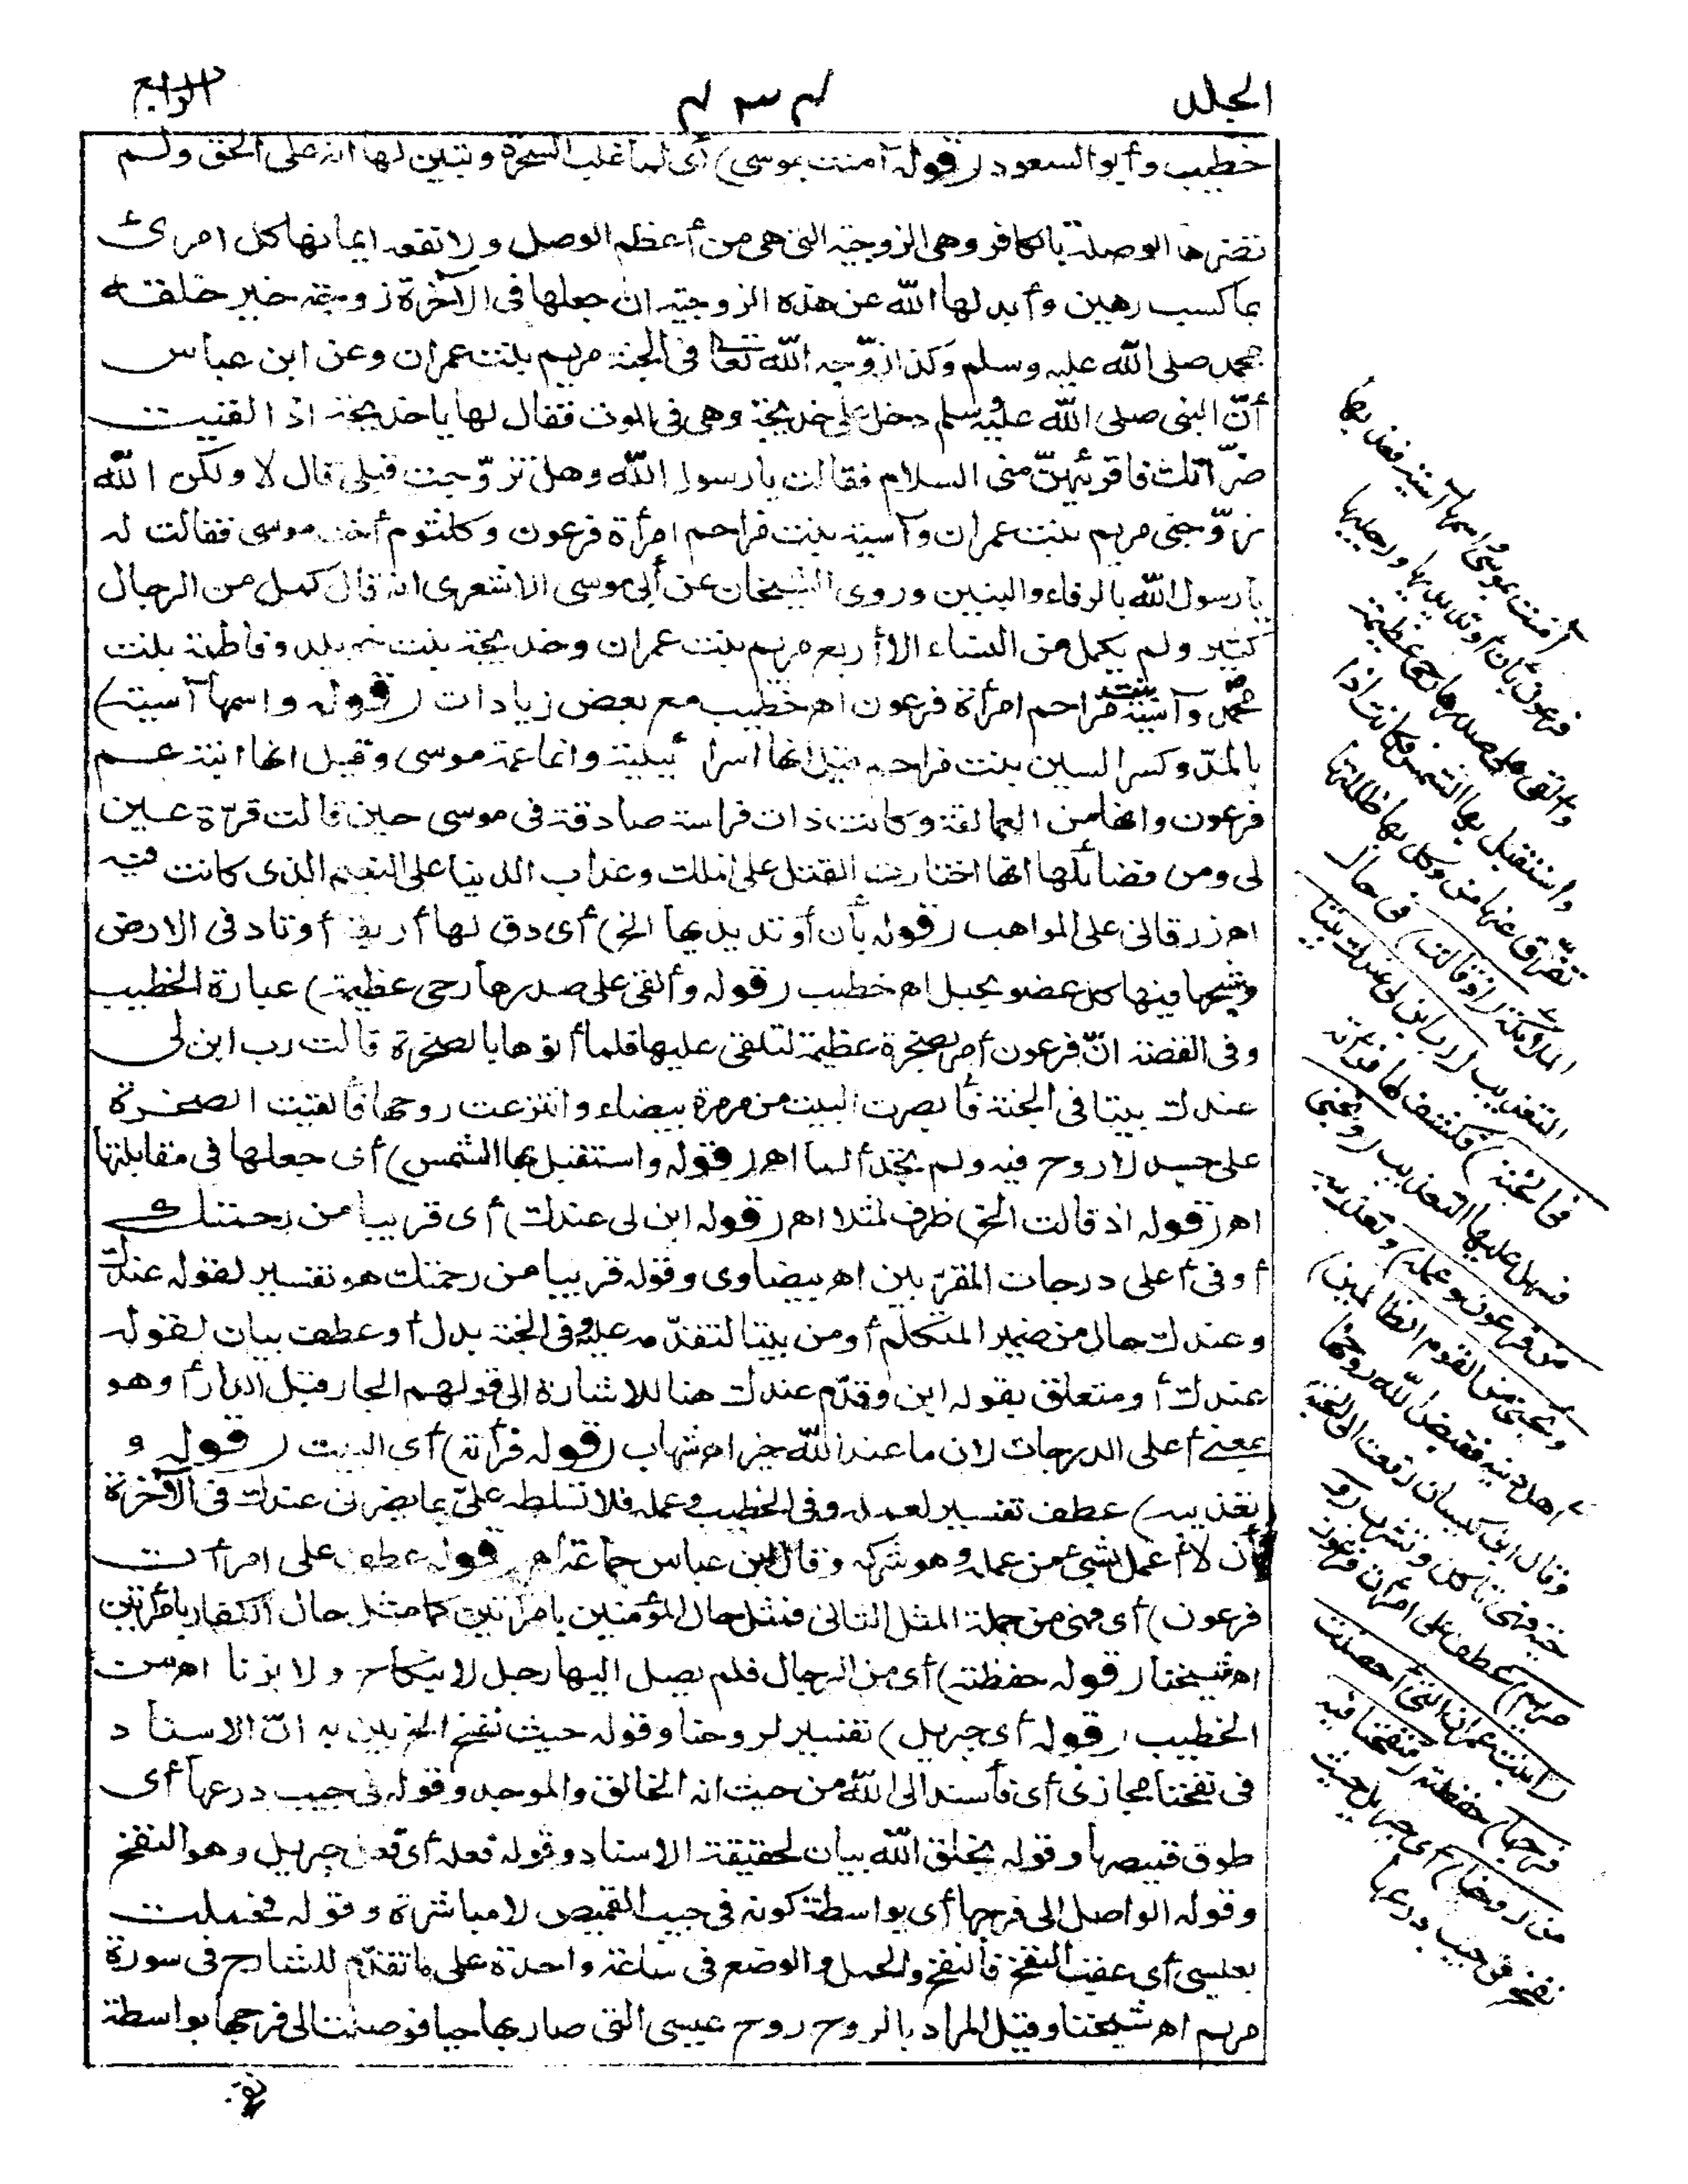 الجلد
٣٣٤
الرابع
خطيب وأبو السعود (قوله آمنت بموسى) أى لما غلب السحرة وتبين لها انه على الحق ولم
تضرها الوصلة بالكافر وهى الزوجية التى هى من أعظم الوصل ولا نفعه ايمانها كل امرئ
بما كسب رهين وأبدلها الله عن هذه الزوجية ان جعلها فى الآخرة زوجة خير خلقه
محمد صلى الله عليه وسلم وكذا زوّجه الله تعالى فى الجنة مريم بنت عمران وعن ابن عباس
أنّ النبى صلى الله عليه وسلم دخل على خديجة وهى فى الموت فقال لها يا خديجة اذا لقيت
ضرّاتك فاقرئيهنّ منى السلام فقالت يا رسول الله وهل تزوّجت قبلى قال لا ولكن الله
زوّجنى مريم بنت عمران وآسية بنت مزاحم امرأة فرعون وكلثوم أخت موسى فقالت له
يا رسول الله بالرفاء والبنين وروى الشيخان عن أبى موسى الاشعرى انه قال كمل من الرجال
كثير ولم يكمل من النساء الا أربع مريم بنت عمران وخديجة بنت خويلد وفاطمة بنت
محمّد وآسية بنت مزاحم امرأة فرعون اه خطيب مع بعض زيادات (قوله واسمها آسية)
بالمدّ وكسر السين بنت مزاحم قيل انها اسرائيلية وانها عمة موسى وقيل انها ابنة عم
فرعون وانها من العمالقة وكانت ذات فراسة صادقة فى موسى حين قالت قرّة عين
لى ومن فضائلها انها اختارت القتل على الملك وعذاب الدنيا على النعيم الذى كانت فيه
اه زرقانى على المواهب (قوله بأن أوتد يديها الخ) أى دق لها أربعة أوتاد فى الارض
وشبحها فيها كل عضو بحبل اه خطيب (قوله وألقى على صدرها رحى عظيمة) عبارة الخطيب
وفى القصة انّ فرعون أمر بصخرة عظيمة لتلقى عليها فلما أتوها بالصخرة قالت رب ابن لى
عندك بيتا فى الجنة فأبصرت البيت من مرمرة بيضاء وانتزعت روحها فألقيت الصخرة
على جسد لا روح فيه ولم تجد ألما اه (قوله واستقبل بها الشمس) أى جعلها فى مقابلتها
اه (قوله اذ قالت الخ) ظرف لمثلا اه (قوله ابن لى عندك) أى قريبا من رحمتك
أو فى أعلى درجات المقرّبين اه بيضاوى وقوله قريبا من رحمتك هو تفسير لقوله عندك
وعندك حال من ضمير المتكلم أو من بيتا لتقدّمه عليه وفى الجنة بدل أو عطف بيان لقوله
عندك أو متعلق بقوله ابن وقدّم عندك هنا للاشارة الى قولهم الجار قبل الدار أو هو
بمعنى أعلى الدرجات لان ما عند الله خير اه شهاب (قوله فرأته) أى البيت (قوله و
تعذيبه) عطف تفسير لعمله وفى الخطيب وعمله فلا تسلطه علىّ بما يضرنى عندك فى الآخرة
بأن لا أعمل بشئ من عمله وهو شركه وقال ابن عباس جماعه اه (قوله عطف على امرأت
فرعون) أى فهى من جملة المثل الثانى فمثل حال المؤمنين بامرأتين كما مثل حال الكفار بامرأتين
اه شيخنا (قوله حفظته) أى من الرجال فلم يصل اليها رجل لا بنكاح ولا بزنا اه من
الخطيب (قوله أى جبريل) تفسير لروحنا وقوله حيث نفخ الخ يبين به انّ الاسناد
فى نفخنا مجازى أى فأسند الى الله من حيث انه الخالق والموجد وقوله فى جيب درعها أى
طوق قميصها وقوله بخلق الله بيان لحقيقة الاسناد وقوله فعله أى فعل جبريل وهو النفخ
وقوله الواصل الى فرجها أى بواسطة كونه فى جيب القميص لا مباشرة وقوله فحملت
بعيسى أى عقب النفخ فالنفخ والحمل والوضع فى ساعة واحدة على ما تقدّم للشارح فى سورة
مريم اه شيخنا وقيل المراد بالروح روح عيسى التى صار بها حيا فوصلت الى فرجها بواسطة
آمنت بموسى واسمها آسية فعذبها
فرعون بأن أوتد يديها ورجليها
وألقى على صدرها رحى عظيمة
واستقبل بها الشمس فكانت اذا
تفرّق عنها من وكل بها ظللتها
الملائكة (اذ قالت) فى حال
التعذيب (رب ابن لى عندك بيتا
فى الجنة) فكشف لها فرأته
فسهل عليها التعذيب (ونجنى
من فرعون وعمله) وتعذيبه
(ونجنى من القوم الظالمين)
أهل دينه فقبض الله روحها
وقال ابن كيسان رفعت الى الجنة
حية فهى تأكل وتشرب (و
مريم) عطف على امرأت فرعون
(ابنت عمران التى أحصنت
فرجها) حفظته (فنفخنا فيه
من روحنا) أى جبريل حيث
نفخ فى جيب درعها